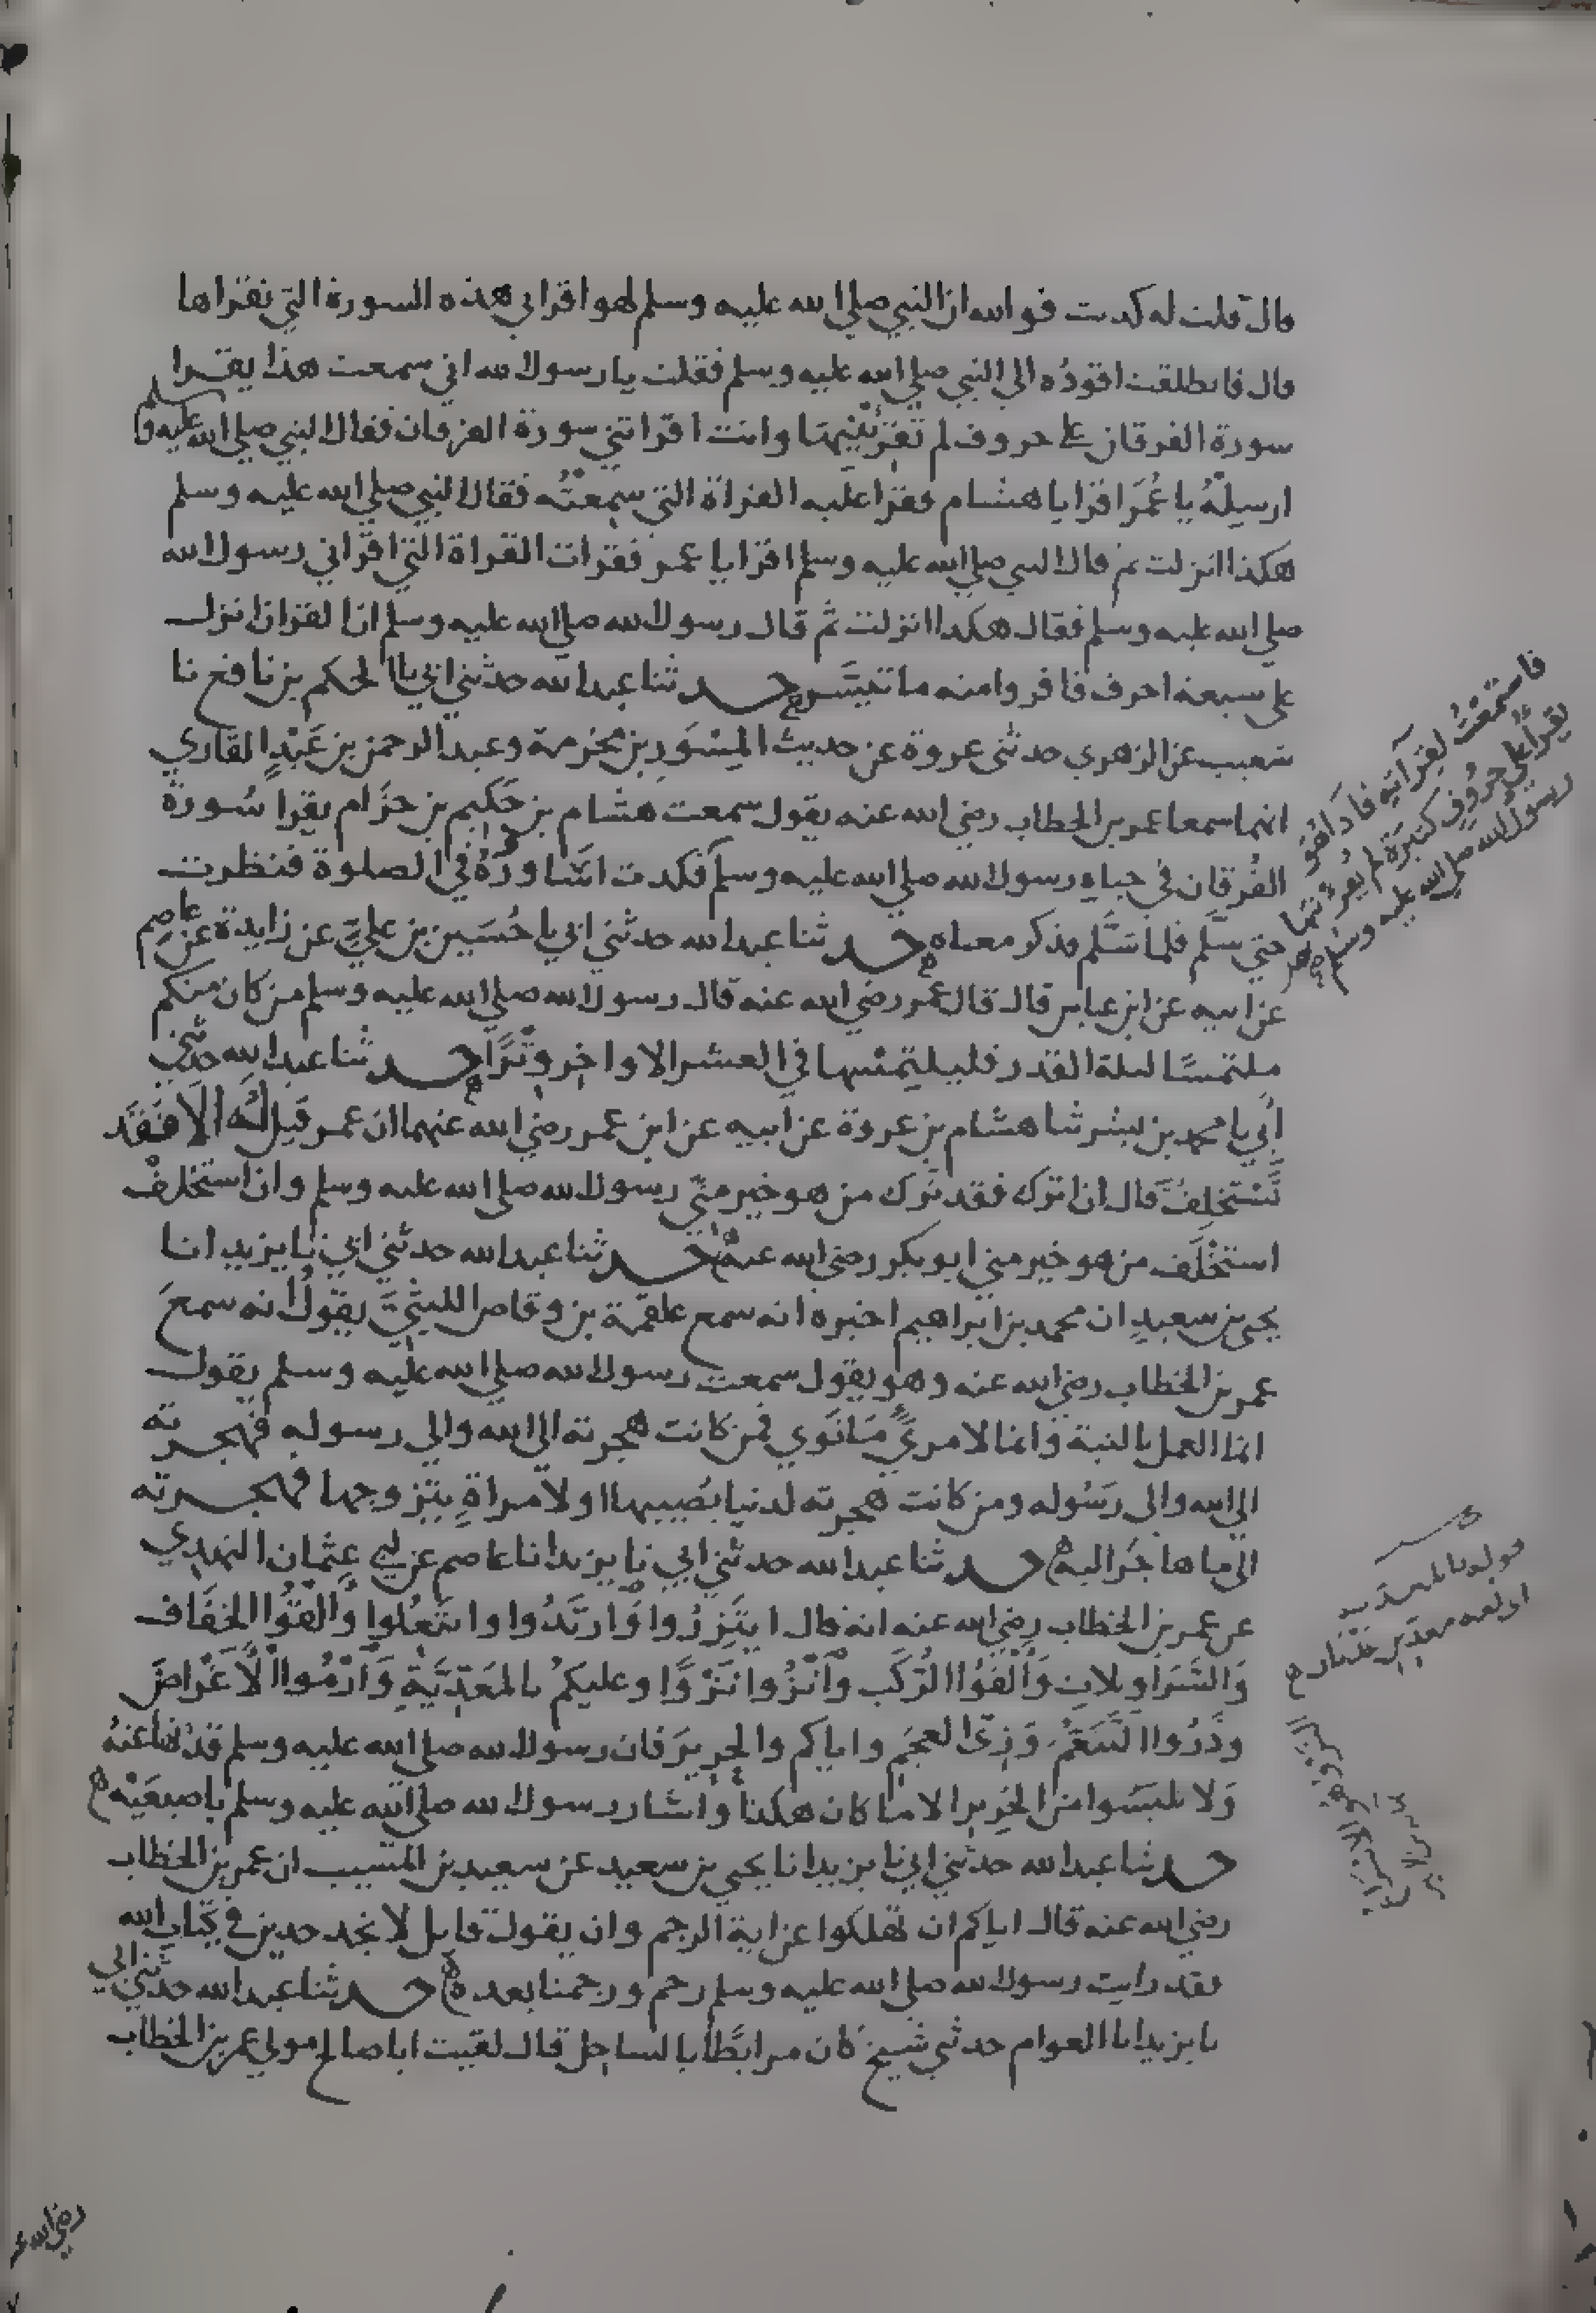 قال قلت له كذبت فوالله ان النبي صلى الله عليه وسلم لهو اقراني هذه السورة التي تقراها
قال فانطلقت اقوده الى النبي صلى الله عليه وسلم فقلت يا رسول الله اني سمعت هذا يقرا
سورة الفرقان على حروف لم تُقرِئْنيها وانت اقراتني سورة الفرقان فقال النبي صلى الله عليه وسلم
ارسِلْهُ يا عُمَر اقرا يا هشام فقرا عليه القراة التي سمعتُه فقال النبي صلى الله عليه وسلم
هكذا انزلت ثم قال النبي صلى الله عليه وسلم اقرا يا عمر فقرات القراة التي اقراني رسول الله
صلى الله عليه وسلم فقال هكذا انزلت ثم قال رسول الله صلى الله عليه وسلم ان القران انزل
على سبعة احرف فاقروا منه ما تيسَّر حدثنا عبد الله حدثني ابي نا الحكم بن نافع نا
شعيب عن الزهري حدثني عروة عن حديث المِسْوَرِ بن مخرمة وعبد الرحمن بن عَبْدٍ القاري
انهما سمعا عمر بن الخطاب رضي الله عنه يقول سمعت هشام بن حَكيم بن حزام يقرا سُورة
الفُرقان في حياه رسول الله صلى الله عليه وسلم فكدت اسَاورُهُ في الصلوة فنظرت
حتى سلّم فلما سَلَّم فذكر معناه حدثنا عبد الله حدثني ابي نا حُسَين بن عليّ عن زايدة عن عاصم
عن ابيه عن ابن عباس قال قال عمر رضي الله عنه قال رسول الله صلى الله عليه وسلم من كان منكم
ملتمسًا ليلة القدر فليلتمسها في العشر الاواخر وترًا حدثنا عبد الله حدثني
ابي نا محمد بن بشر ثنا هشام بن عروة عن ابيه عن ابن عمر رضي الله عنهما ان عمر قيل لَهُ الا
تَسْتخلِفُ قال ان اترك فقد ترك من هو خير منّي رسول الله صلى الله عليه وسلم وان استخلفْ
استخْلَف من هو خير مني ابو بكر رضي الله عنه حدثنا عبد الله حدثني ابي نا يزيد انا
يحيى بن سعيد ان محمد بن ابراهيم اخبره انه سمع علقمة بن وقاص الليثيَّ يقول انه سمعَ
عمر بن الخطاب رضي الله عنه وهو يقول سمعت رسول الله صلى الله عليه وسلم يقول
انما العمل بالنية وانما لامرئ مَا نَوى فمن كانت هجرته الى الله والى رسوله فهجرته
الى الله والى رسُوله ومن كانت هجرته لدنيا يُصيبها او لامراةٍ يتزوجها فهجرته
الى ما هاجَر اليه حدثنا عبد الله حدثني ابي نا يزيد انا عاصم عن ابي عثمان النهدِي
عن عمر بن الخطاب رضي الله عنه انه قال ايتَزِرُوا وَارتَدُوا وانتَعِلُوا وَالقُوا الخفَاف
وَالسَّرَاويلاتِ وَأَلْقُوا الرُّكُب وَانْزُوا نَزْوًا وعليكمُ بالمعَدِّيَّةِ وَارْمُوا الأَغْراضَ
وذَرُوا التَّنَعُّمَ وَزِيّ العجَمِ واياكم والحرِيرَ فان رسول الله صلى الله عليه وسلم قدْ نها عنهُ
وَلا تلبَسوا من الحَرير الا ما كان هكذا واشار رسول الله صلى الله عليه وسلم باصبعَيْه
حدثنا عبد الله حدثني ابي نا يزيد انا يحيى بن سعيد عن سعيد بن المسيب ان عمر بن الخطاب
رضي الله عنه قال اياكم ان تَهلكوا عن اية الرجم وان يقول قايل لا نجد حدين في كتاب الله
فقد رايت رسول الله صلى الله عليه وسلم رجم ورجمنا بعده حدثنا عبد الله حدثني ابي
نا يزيد انا العوام حدثني شيخ كان مرابطًا بالساحِل قال لقيت ابا صالح مولى عمر بن الخطاب
رضي الله عنه
فاستمعْتُ لقِرآتِه فاذا هُو
يقرأُ على حُروُفٍ كثيرَةٍ لم يُقرِئنيها
رسول الله صلى الله عليه وسلم
قوله بالمعدّيه